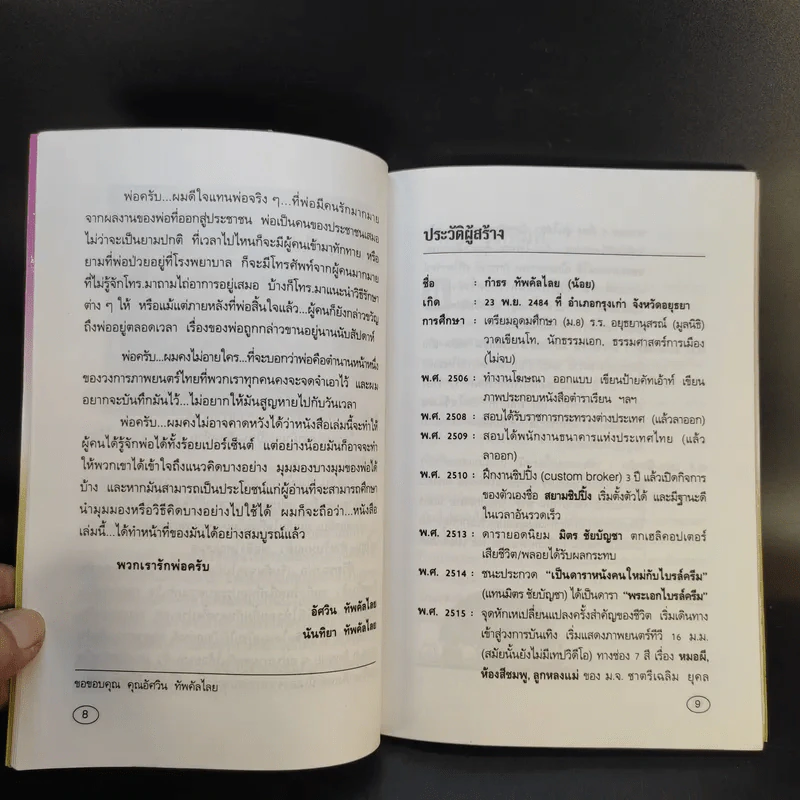 พ่อครับ...ผมดีใจแทนพ่อจริง ๆ...ที่พ่อมีคนรักมากมาย
จากผลงานของพ่อที่ออกสู่ประชาชน พ่อเป็นคนของประชาชนเสมอ
ไม่ว่าจะเป็นยามปกติ ที่เวลาไปไหนก็จะมีผู้คนเข้ามาทักทาย หรือ
ยามที่พ่อป่วยอยู่ที่โรงพยาบาล ก็จะมีโทรศัพท์จากผู้คนมากมาย
ที่ไม่รู้จักโทร.มาถามไถ่อาการอยู่เสมอ บ้างก็โทร.มาแนะนำวิธีรักษา
ต่าง ๆ ให้ หรือแม้แต่ภายหลังที่พ่อสิ้นใจแล้ว...ผู้คนก็ยังกล่าวขวัญ
ถึงพ่ออยู่ตลอดเวลา เรื่องของพ่อถูกกล่าวขานอยู่นานนับสัปดาห์
พ่อครับ...ผมคงไม่อายใคร...ที่จะบอกว่าพ่อคือตำนานหน้าหนึ่ง
ของวงการภาพยนตร์ไทยที่พวกเราทุกคนคงจะจดจำเอาไว้ และผม
อยากจะบันทึกมันไว้...ไม่อยากให้มันสูญหายไปกับวันเวลา
พ่อครับ...ผมคงไม่อาจคาดหวังได้ว่าหนังสือเล่มนี้จะทำให้
ผู้คนได้รู้จักพ่อได้ทั้งร้อยเปอร์เซ็นต์ แต่อย่างน้อยมันก็อาจจะทำ
ให้พวกเขาได้เข้าใจถึงแนวคิดบางอย่าง มุมมองบางมุมของพ่อได้
บ้าง และหากมันสามารถเป็นประโยชน์แก่ผู้อ่านที่จะสามารถศึกษา
นำมุมมองหรือวิธีคิดบางอย่างไปใช้ได้ ผมก็จะถือว่า...หนังสือ
เล่มนี้...ได้ทำหน้าที่ของมันได้อย่างสมบูรณ์แล้ว
พวกเรารักพ่อครับ
อัศวิน ทัพคัลไลย
นันทิยา ทัพคัลไลย
ขอขอบคุณ คุณอัศวิน ทัพคัลไลย
8
ประวัติผู้สร้าง
ชื่อ : กำธร ทัพคัลไลย (น้อย)
เกิด : 23 พ.ย. 2484 ที่ อำเภอกรุงเก่า จังหวัดอยุธยา
การศึกษา : เตรียมอุดมศึกษา (ม.8) ร.ร. อยุธยานุสรณ์ (มูลนิธิ)
วาดเขียนโท, นักธรรมเอก, ธรรมศาสตร์การเมือง
(ไม่จบ)
พ.ศ. 2506 : ทำงานโฆษณา ออกแบบ เขียนป้ายคัทเอ้าท์ เขียน
ภาพประกอบหนังสือตำราเรียน ฯลฯ
พ.ศ. 2508 : สอบได้รับราชการกระทรวงต่างประเทศ (แล้วลาออก)
พ.ศ. 2509 : สอบได้พนักงานธนาคารแห่งประเทศไทย (แล้ว
ลาออก)
พ.ศ. 2510 : ฝึกงานชิปปิ้ง (custom broker) 3 ปี แล้วเปิดกิจการ
ของตัวเองชื่อ สยามชิปปิ้ง เริ่มตั้งตัวได้ และมีฐานะดี
ในเวลาอันรวดเร็ว
พ.ศ. 2513 : ดารายอดนิยม มิตร ชัยบัญชา ตกเฮลิคอปเตอร์
เสียชีวิต/พลอยได้รับผลกระทบ
พ.ศ. 2514 : ชนะประกวด "เป็นดาราหนังคนใหม่กับไบรล์ครีม"
(แทนมิตร ชัยบัญชา) ได้เป็นดารา "พระเอกไบรล์ครีม"
พ.ศ. 2515 : จุดหักเหเปลี่ยนแปลงครั้งสำคัญของชีวิต เริ่มเดินทาง
เข้าสู่วงการบันเทิง เริ่มแสดงภาพยนตร์ทีวี 16 ม.ม.
(สมัยนั้นยังไม่มีเทปวิดีโอ) ทางช่อง 7 สี เรื่อง หมอผี,
ห้องสีชมพู, ลูกหลงแม่ ของ ม.จ. ชาตรีเฉลิม ยุคล
9